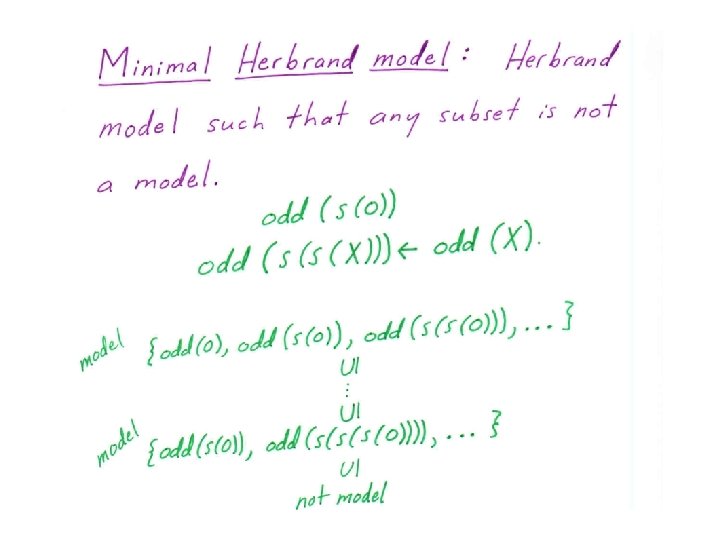 Minimal Herbrand model: Herbrand
model such that any subset is not
a model.
odd (s(0))
odd (s(s(X))) ← odd (X).
model {odd(0), odd(s(0)), odd(s(s(0))), ... }
UI
⋮
UI
model {odd(s(0)), odd(s(s(s(0)))), ... }
UI
not model